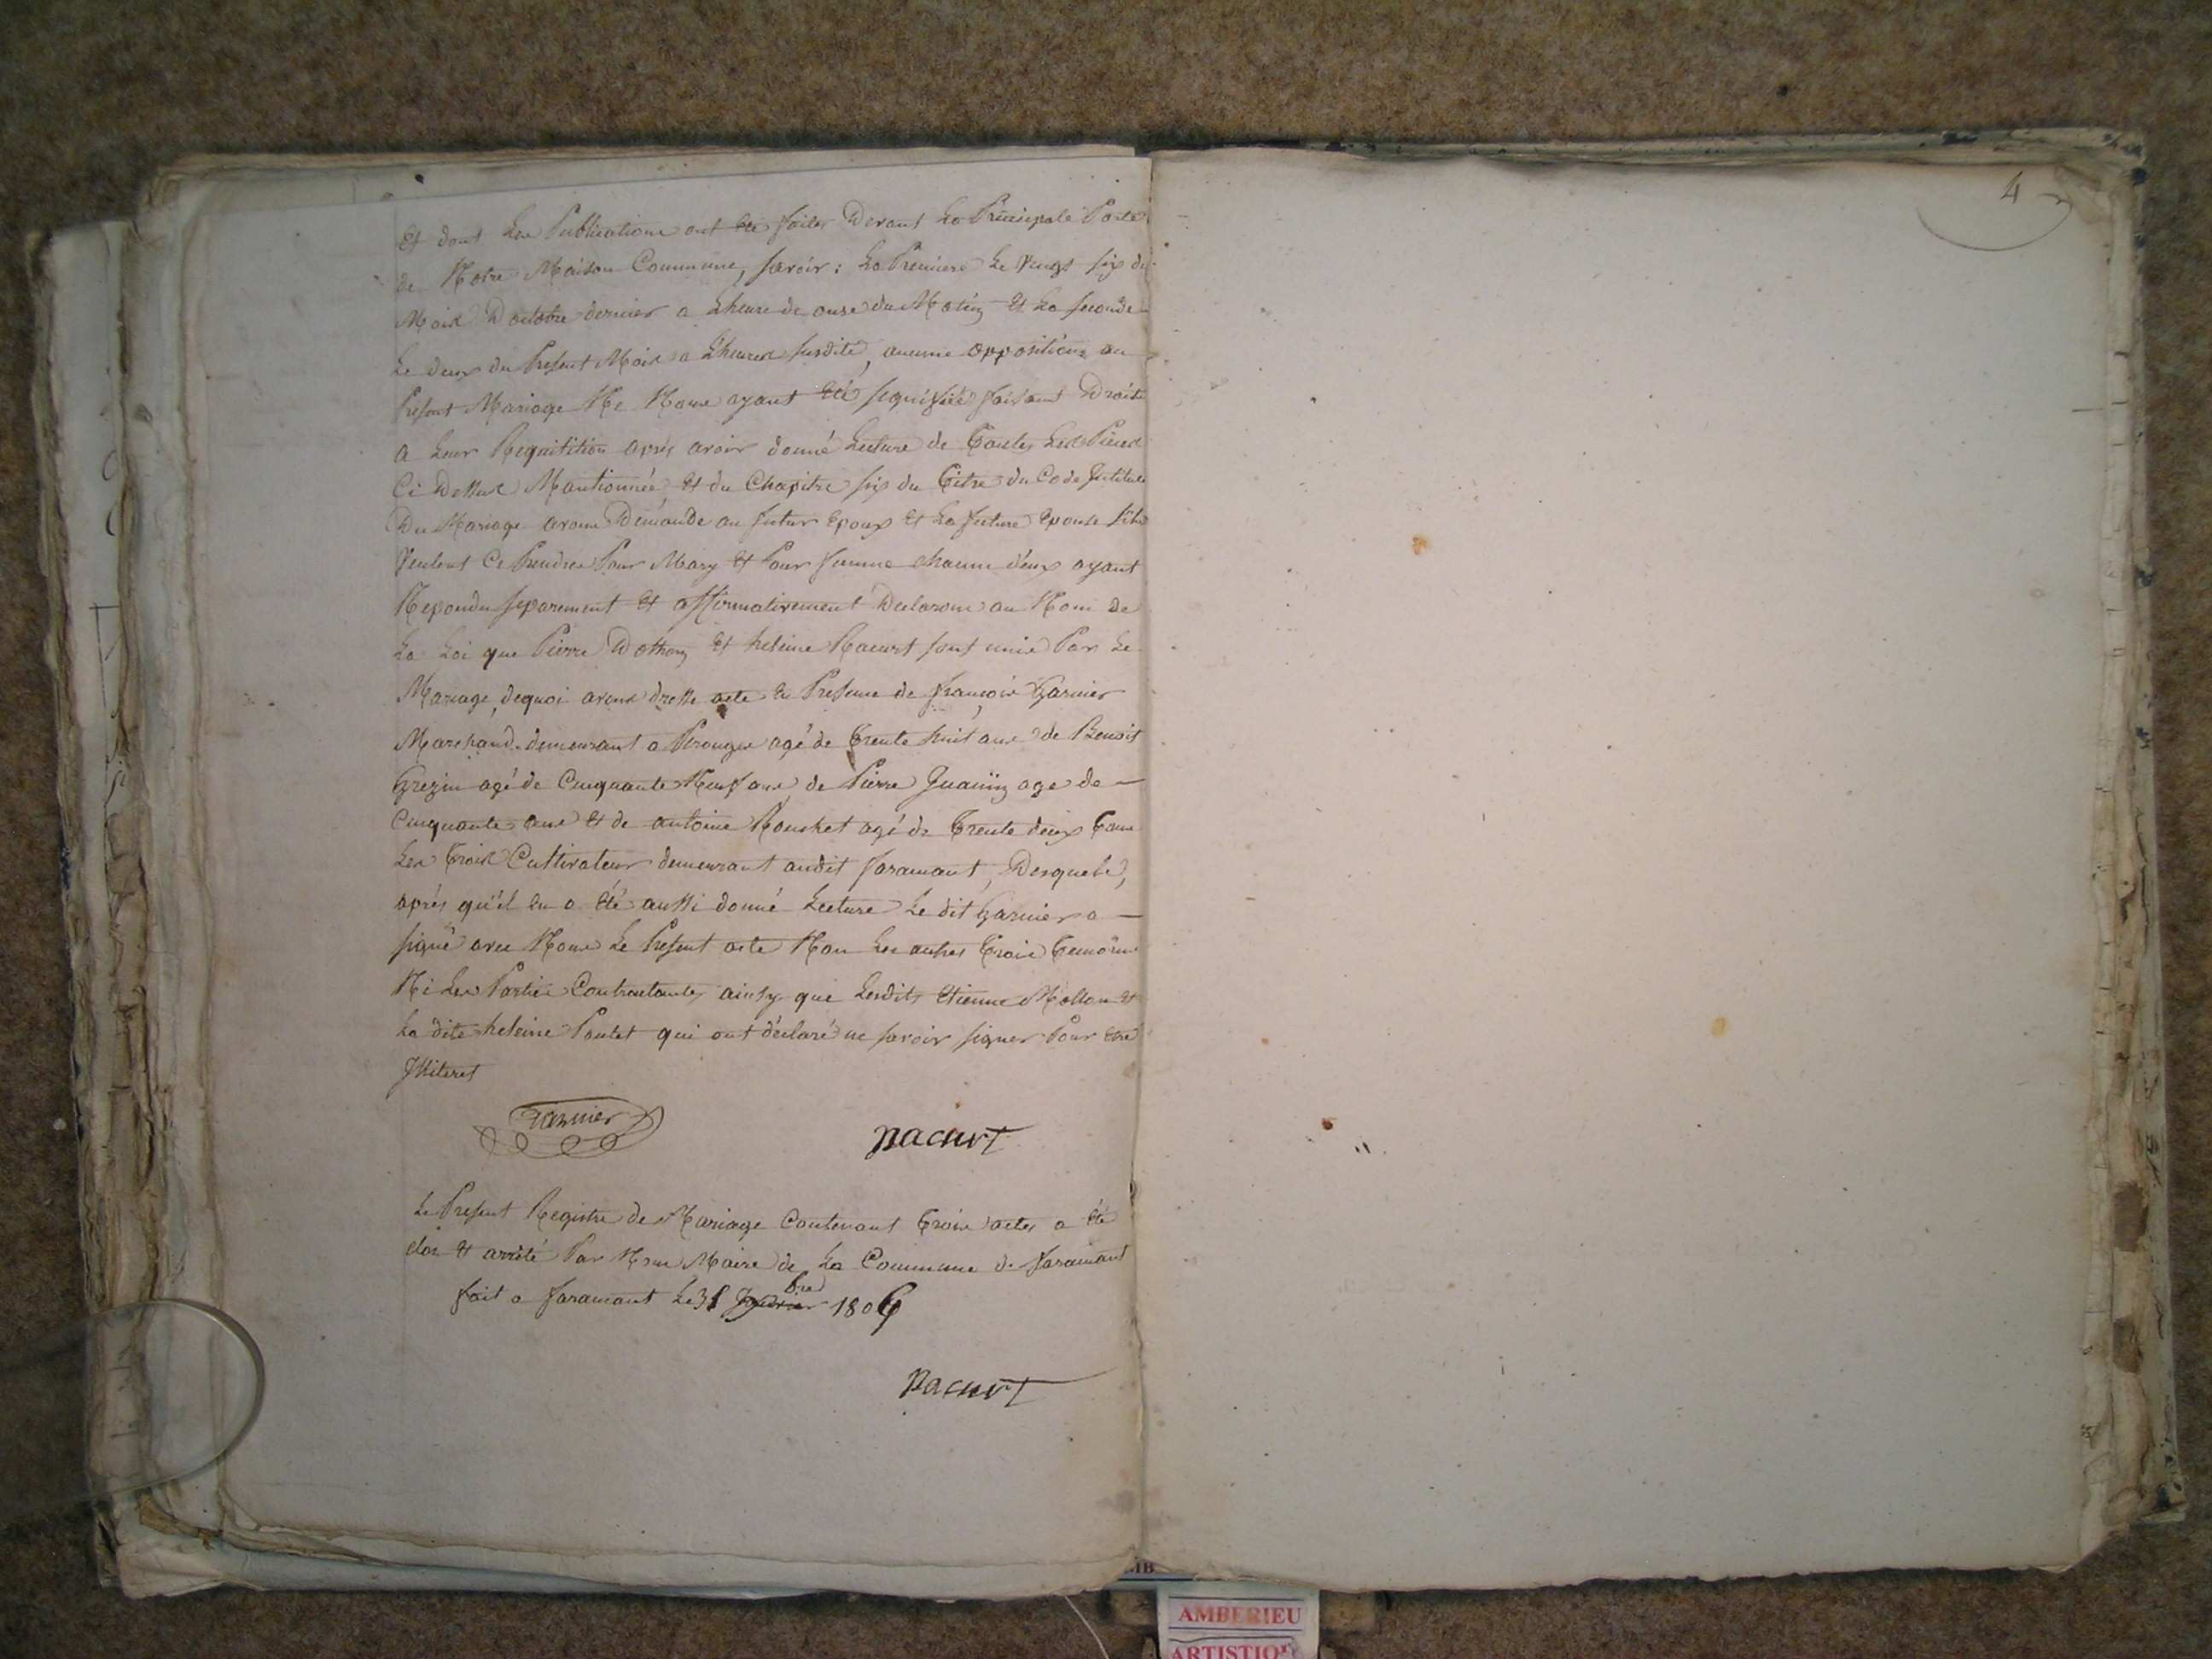 Et dont Les Publications ont été faites Devant La Principale Porte
de Notre Maison Commune, savoir: La Premiere Le Vingt six du
Mois D'octobre dernier a L'heure de onse du Matin et La seconde
Le deux du Present Mois a L'heure susdite, aucune opposition au
Present Mariage Ne Nous ayant été signifiée faisant Droit
a Leur Requitition après avoir donné Lecture de Toutes Les Pieces
Ci Dessus Mantionnée et du Chapitre six du Titre du Code Intitulé
Du Mariage avons Demande au futur Epoux et La future Epouse s'ils
Veulent Ce Prendre Pour Mary et Pour femme chacun d'eux ayant
Repondu separement et affirmativement Declarons au Nom de
La Loi que Pierre et heleine Pacurt sont unis Par Le
Mariage, dequoi avons dressé acte En Presence de françois Garnier
Marchand demeurant a Perouges agé de Trente huit ans de Benoit
Grezin agé de Cinquante Neuf ans, de Pierre Juanin age de —
Cinquante ans et de antoine agé de Trente deux Tous
Les Trois Cultivateur demeurant audit faramant, Desquels,
après qu'il En a été aussi donné Lecture Le dit Garnier a —
signé avec Nous Le Present acte Non Les autres Trois Temoins
Ni Les Parties Contractantes ainsy que Lesdits Etienne Mollon et
La dite heleine Poulet qui ont déclaré ne savoir signer Pour être
Illiteret
Garnier
Pacurt
Le Present Registre de Mariage Contenant Trois actes a été
clos et arrêté Par Nous Maire de La Commune de faramant
fait a faramant Le 31 bre 1806
Pacurt
4
LIB
AMBERIEU
ARTISTIQ